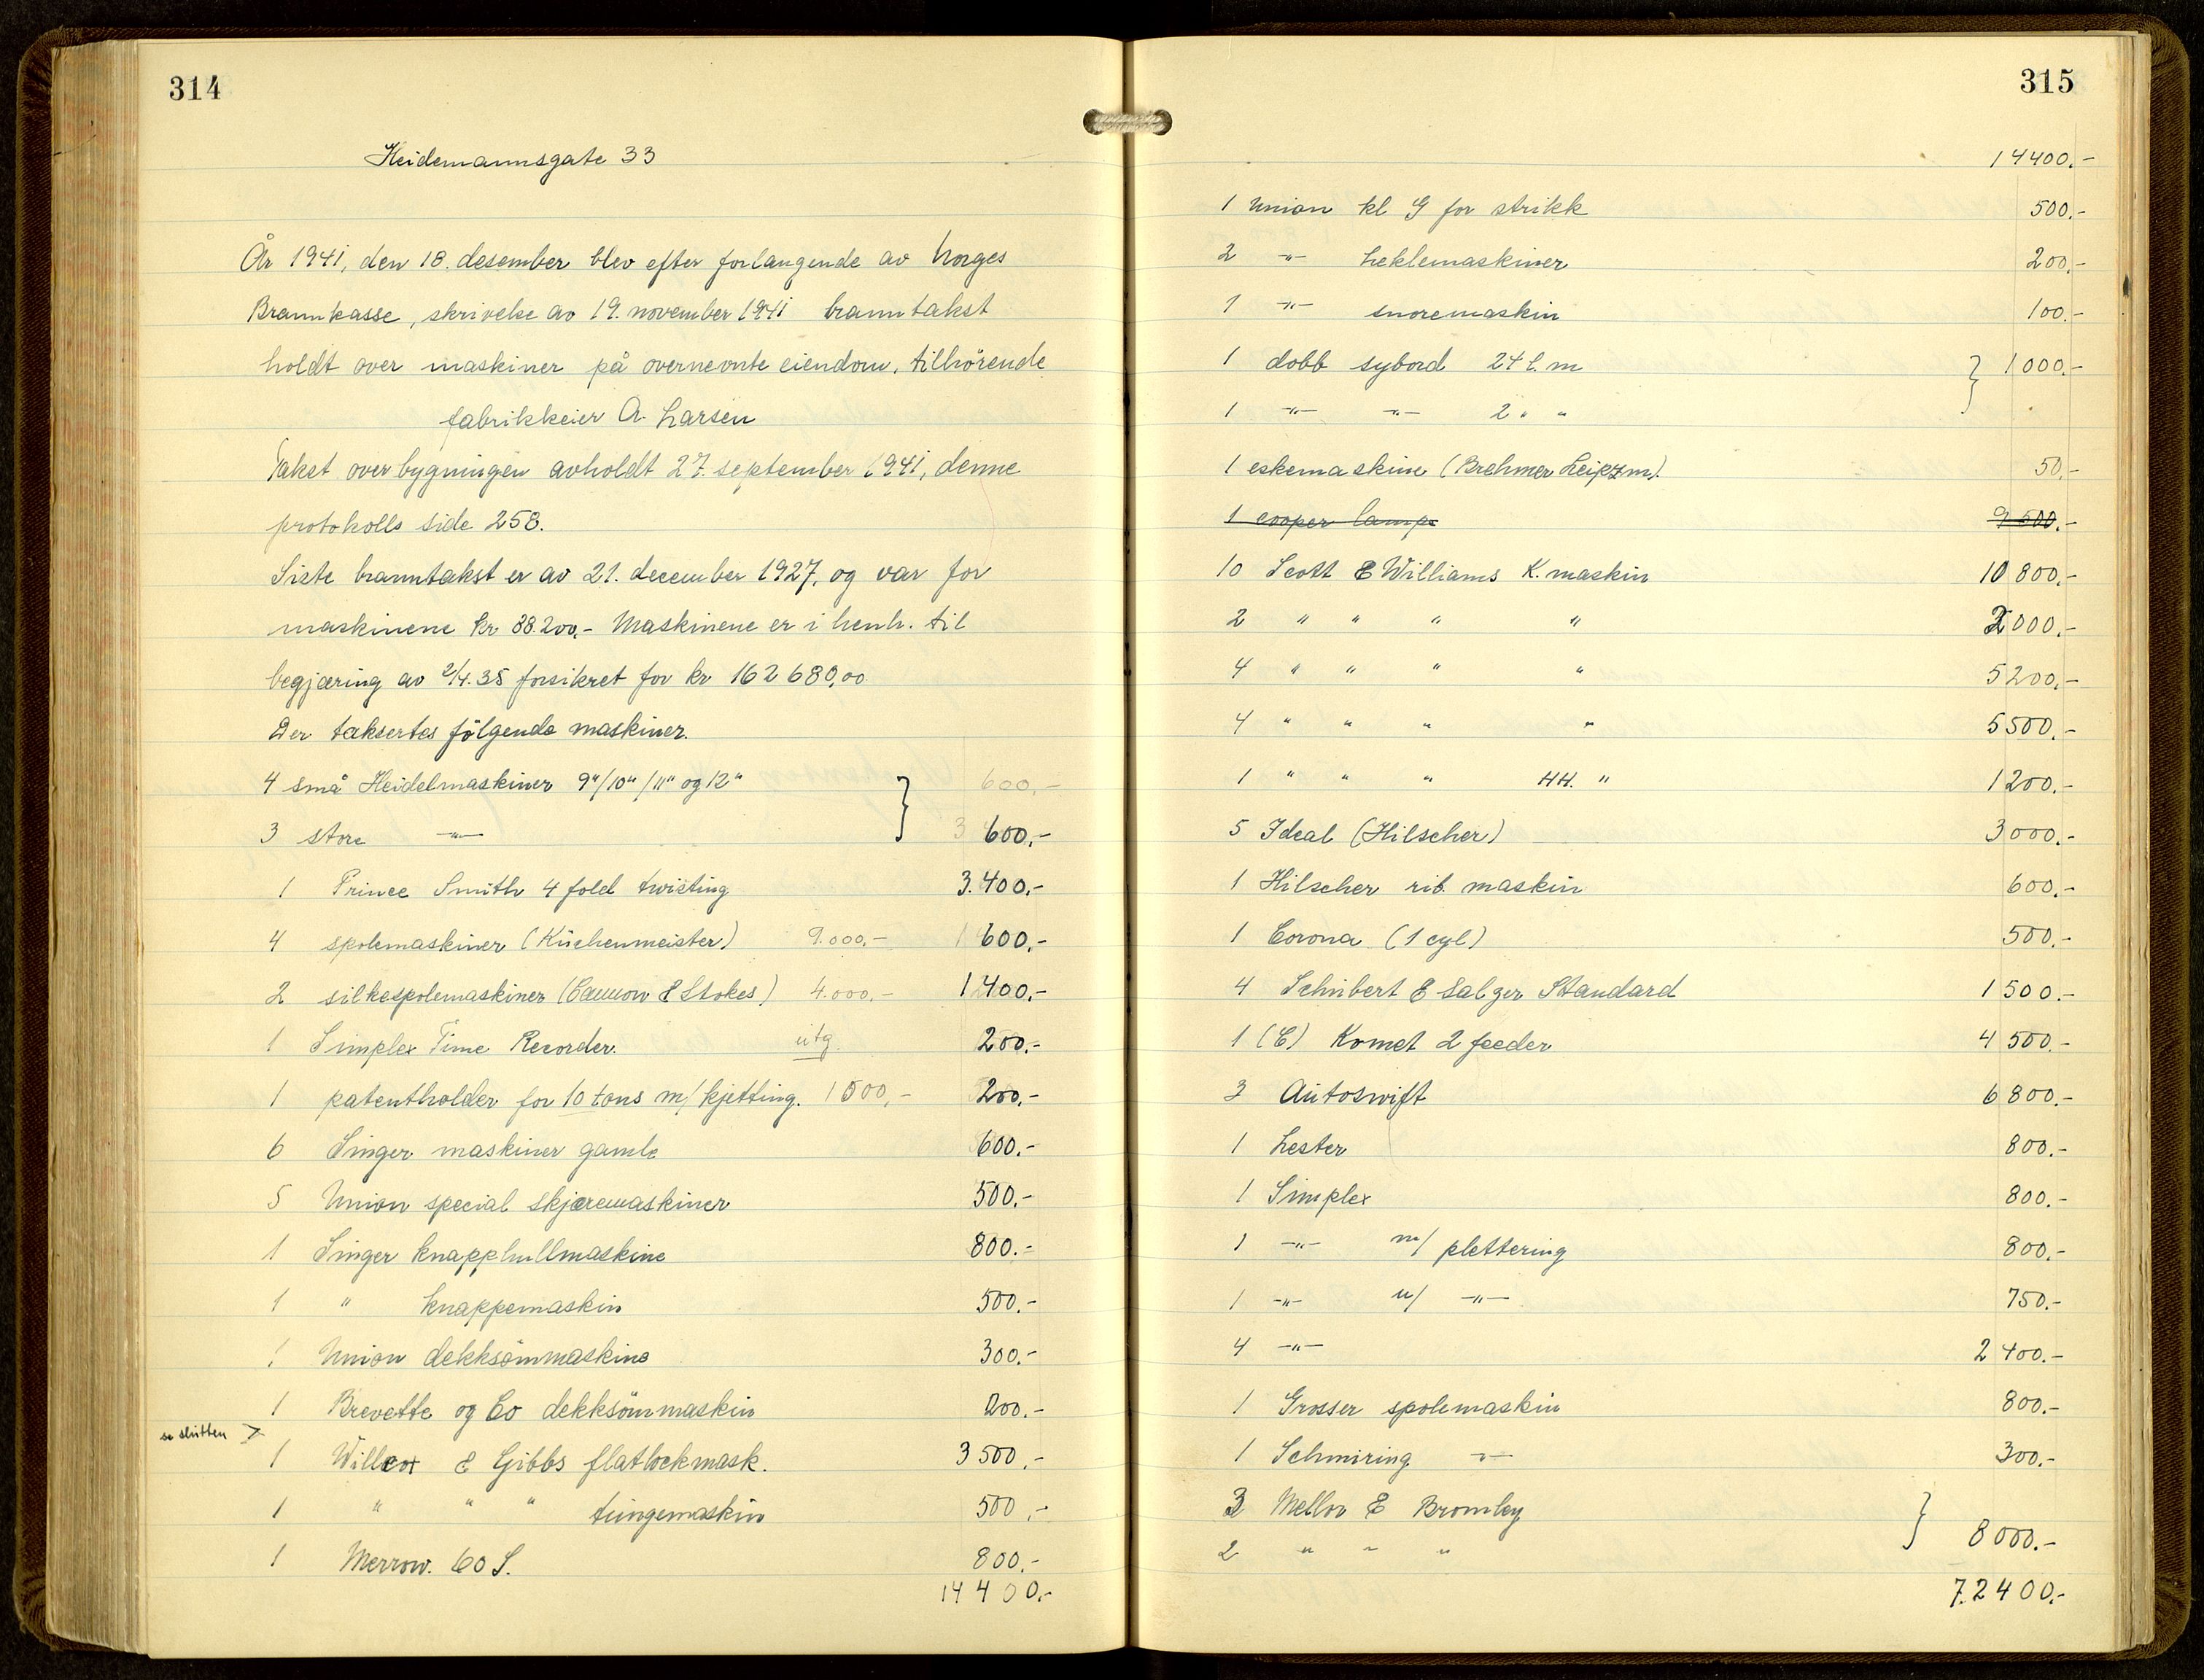 314
Heidemannsgate 33
År 1941, den 18. desember blev efter forlangende av Norges
Brannkasse, skrivelse av 19. november 1941 branntakst
holdt over maskiner på overnevnte eiendom, tilhörende
fabrikkeier A. Larsen
Takst over bygningen avholdt 27. september 1941, denne
protokolls side 258.
Siste branntakst er av 21. december 1927, og var for
maskinene kr 88.200,- Maskinene er i henh. til
begjæring av 2/4.35 forsikret for kr 162 680,00
Der taksertes fölgende maskiner.
4 små Heidelmaskiner 9"/10"/11" og 12" } 600,-
3 store -"- 600,-
1 Prince Smith 4 fold twisting 3.400,-
4 spolemaskiner (Küchenmeister) 9.000,- 1 600,-
2 silkespolemaskiner (Cannon & Stokes) 4.000,- 1 400,-
1 Simplex Time Recorder. utg. 200,-
1 patentholder for 10 tons m/ kjetting. 1 500,- 200,-
6 Singer maskiner gamle 600,-
5 Union special skjæremaskiner 500,-
1 Singer knapphullmaskine 800.-
1 " knappemaskin 500.-
1 Union dekksömmaskine 300.-
1 Brevette og Co dekksömmaskin 200.-
se slutten >
1 Willcox & Gibbs flatlockmask. 3 500,-
1 " " " tungemaskin 500,-
1 Merrow. 60 S. 800.-
14 400.-
315
14400.-
1 Union kl G for strikk 500.-
2 -"- heklemaskiner 200,-
1 -"- snoremaskin 100.-
1 dobb sybord 24 l. m } 1 000.-
1 -"- -"- 2 " "
1 eskemaskine (Brehmer Leipz m). 50,-
1 cooper lampe 9 500.-
10 Scott & Williams K. maskin 10 800.-
2 " " " " 2 000.-
4 " " " " 5 200,-
4 " " " " 5 500.-
1 " " " HH. " 1 200.-
5 Ideal (Hilscher) 3 000.-
1 Hilscher rib. maskin 600.-
1 Corona (1 cyl) 500.-
4 Schubert & Salzer Standard 1 500.-
1 (C) Komet 2 feeder 4 500.-
3 Autoswift 6 800.-
1 Lester 800.-
1 Simplex 800.-
1 -"- m/ plettering 800.-
1 -"- u/ -"- 750.-
4 -"- 2 400.-
1 Grosser spolemaskin 800.-
1 Schmiring -"- 300.-
3 Mellor & Bromley } 8 000.-
2 " " "
7.2 400.-